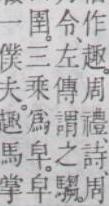 作趣。周禮詩周
令、左傳謂之騶。
一圉。三乘爲皁。皁
僕夫。趣馬掌